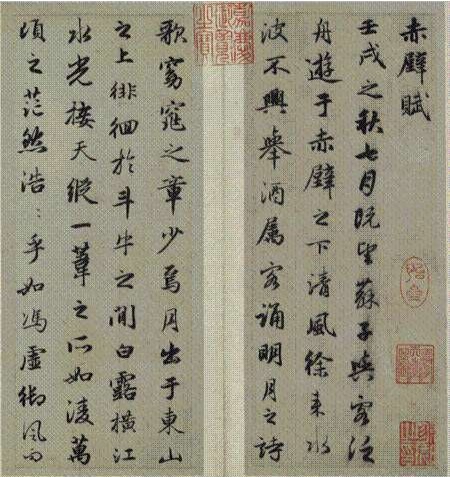 赤壁賦
壬戌之秋七月既望蘇子與客泛
舟遊于赤壁之下清風徐来水
波不興舉酒属客誦明月之詩
歌窈窕之章少焉月出于東山
之上徘徊於斗牛之間白露橫江
水光接天縱一葦之所如淩萬
頃之茫然浩〻乎如馮虛御風而
嘉慶御覽之寶